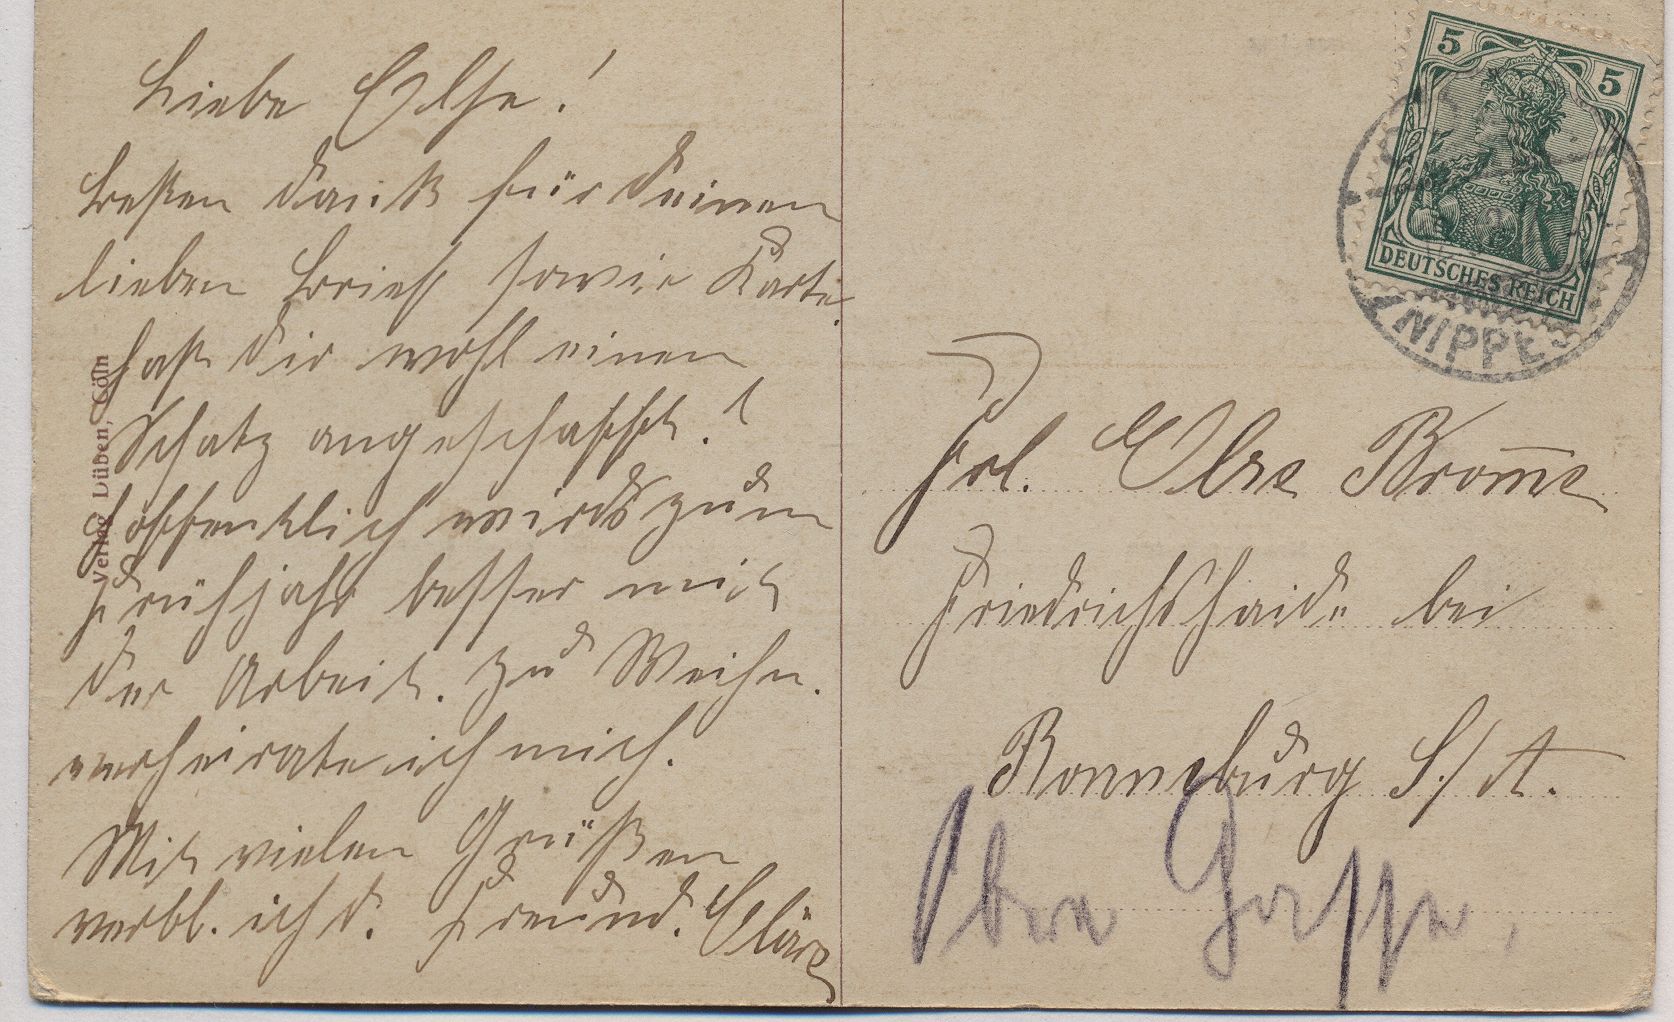 Liebe Else!
besten Dank für Deinen
lieben Brief sowie Karte.
hast Dir wohl einen
Schatz angeschafft.?
hoffentlich wirds zum
Frühjahr besser mit
der Arbeit. zu Weihn.
verheirate ich mich.
Mit vielen Grüßen
verbl. ich d. Freund. Cläre
Verlag Düben, Cöln
5 5
DEUTSCHES REICH
NIPPES
Frl. Else Brom̅e
Friedrichshaide bei
Ronneburg S./A.
Obere Gasse.